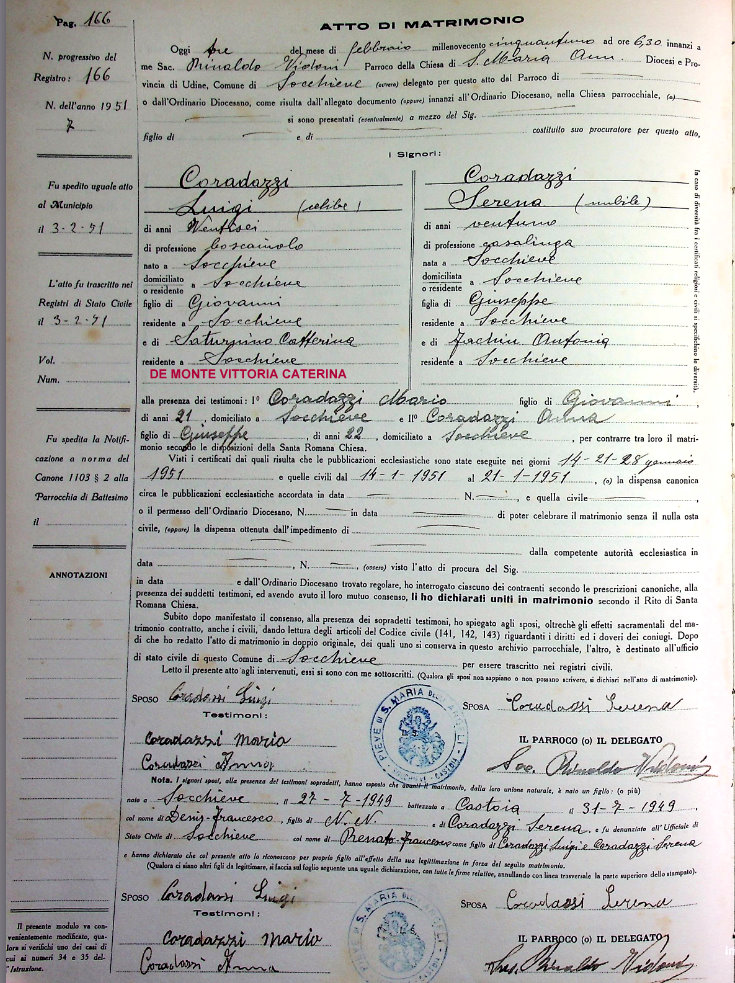 Pag. 166
N. progressivo del
Registro: 166
N. dell'anno 1951
7
Fu spedito uguale atto
al Municipio
il 3-2-51
L'atto fu trascritto nei
Registri di Stato Civile
il 3-2-51
Vol.
Num.
Fu spedita la Notifi-
cazione a norma del
Canone 1103 § 2 alla
Parrocchia di Battesimo
il
ANNOTAZIONI
Il presente modulo va con-
venientemente modificato, qua-
lora si verifichi uno dei casi di
cui ai numeri 34 e 35 del-
l'Istruzione.
ATTO DI MATRIMONIO
Oggi tre del mese di febbraio millenovecento cinquantuno ad ore 6,30 innanzi a
me Sac. Rinaldo Vidoni Parroco della Chiesa di S. Maria Ann. Diocesi e Pro-
vincia di Udine, Comune di Socchieve (ovvero) delegato per questo atto dal Parroco di
o dall'Ordinario Diocesano, come risulta dall'allegato documento (oppure) innanzi all'Ordinario Diocesano, nella Chiesa parrocchiale, (o)
si sono presentati (eventualmente) a mezzo del Sig.
figlio di e di costituito suo procuratore per questo atto,
i Signori:
Coradazzi
Luigi (celibe)
di anni Ventisei
di professione boscaiolo
nato a Socchieve
domiciliato
o residente a Socchieve
figlio di Giovanni
residente a Socchieve
e di Saturnino Catterina
residente a Socchieve
DE MONTE VITTORIA CATERINA
Coradazzi
Serena (nubile)
di anni ventuno
di professione casalinga
nata a Socchieve
domiciliata
o residente a Socchieve
figlia di Giuseppe
residente a Socchieve
e di Jachin Antonia
residente a Socchieve
In caso di diversità fra i certificati religiosi e civili si specifichino le diversità.
alla presenza dei testimoni: I° Coradazzi Mario figlio di Giovanni,
di anni 21, domiciliato a Socchieve e II° Coradazzi Anna
figlio di Giuseppe, di anni 22, domiciliato a Socchieve, per contrarre tra loro il matri-
monio secondo le disposizioni della Santa Romana Chiesa.
Visti i certificati dai quali risulta che le pubblicazioni ecclesiastiche sono state eseguite nei giorni 14-21-28 gennaio
1951 e quelle civili dal 14-1-1951 al 21-1-1951, (o) la dispensa canonica
circa le pubblicazioni ecclesiastiche accordata in data N., e quella civile
o il permesso dell'Ordinario Diocesano, N. in data di poter celebrare il matrimonio senza il nulla osta
civile, (oppure) la dispensa ottenuta dall'impedimento di
dalla competente autorità ecclesiastica in
data, N., (ossero) visto l'atto di procura del Sig.
in data e dall'Ordinario Diocesano trovato regolare, ho interrogato ciascuno dei contraenti secondo le prescrizioni canoniche, alla
presenza dei suddetti testimoni, ed avendo avuto il loro mutuo consenso, li ho dichiarati uniti in matrimonio secondo il Rito di Santa
Romana Chiesa.
Subito dopo manifestato il consenso, alla presenza dei sopradetti testimoni, ho spiegato agli sposi, oltrechè gli effetti sacramentali del ma-
trimonio contratto, anche i civili, dando lettura degli articoli del Codice civile (141, 142, 143) riguardanti i diritti ed i doveri dei coniugi. Dopo
di che ho redatto l'atto di matrimonio in doppio originale, dei quali uno si conserva in questo archivio parrocchiale, l'altro, è destinato all'ufficio
di stato civile di questo Comune di Socchieve per essere trascritto nei registri civili.
Letto il presente atto agli intervenuti, essi si sono con me sottoscritti. (Qualora gli sposi non sappiano o non possano scrivere, si dichiari nell'atto di matrimonio).
SPOSO Coradazzi Luigi
SPOSA Coradazzi Serena
Testimoni:
Coradazzi Mario
Coradazzi Anna
IL PARROCO (o) IL DELEGATO
Sac. Rinaldo Vidoni
PIEVE DI S. MARIA DEGLI ANGELI
SOCCHIEVE CASTOIA
Nota. I signori sposi, alla presenza dei testimoni sopradetti, hanno esposto che avanti il matrimonio, dalla loro unione naturale, è nato un figlio: (o più)
nato a Socchieve il 27-7-1949 battezzato a Castoia il 31-7-1949,
col nome di Denis-Francesco, figlio di N.N. e di Coradazzi Serena, e fu denunziato all'Ufficiale di
Stato Civile di Socchieve col nome di Renato-Francesco come figlio di Coradazzi Luigi e Coradazzi Serena
e hanno dichiarato che col presente atto lo riconoscono per proprio figlio all'effetto della sua legittimazione in forza del seguito matrimonio.
(Qualora ci siano altri figli da legittimare, si faccia sul foglio seguente una uguale dichiarazione, con tutte le firme relative, annullando con linea trasversale la parte superiore dello stampato).
SPOSO Coradazzi Luigi
SPOSA Coradazzi Serena
Testimoni:
Coradazzi Mario
Coradazzi Anna
IL PARROCO (o) IL DELEGATO
Sac. Rinaldo Vidoni